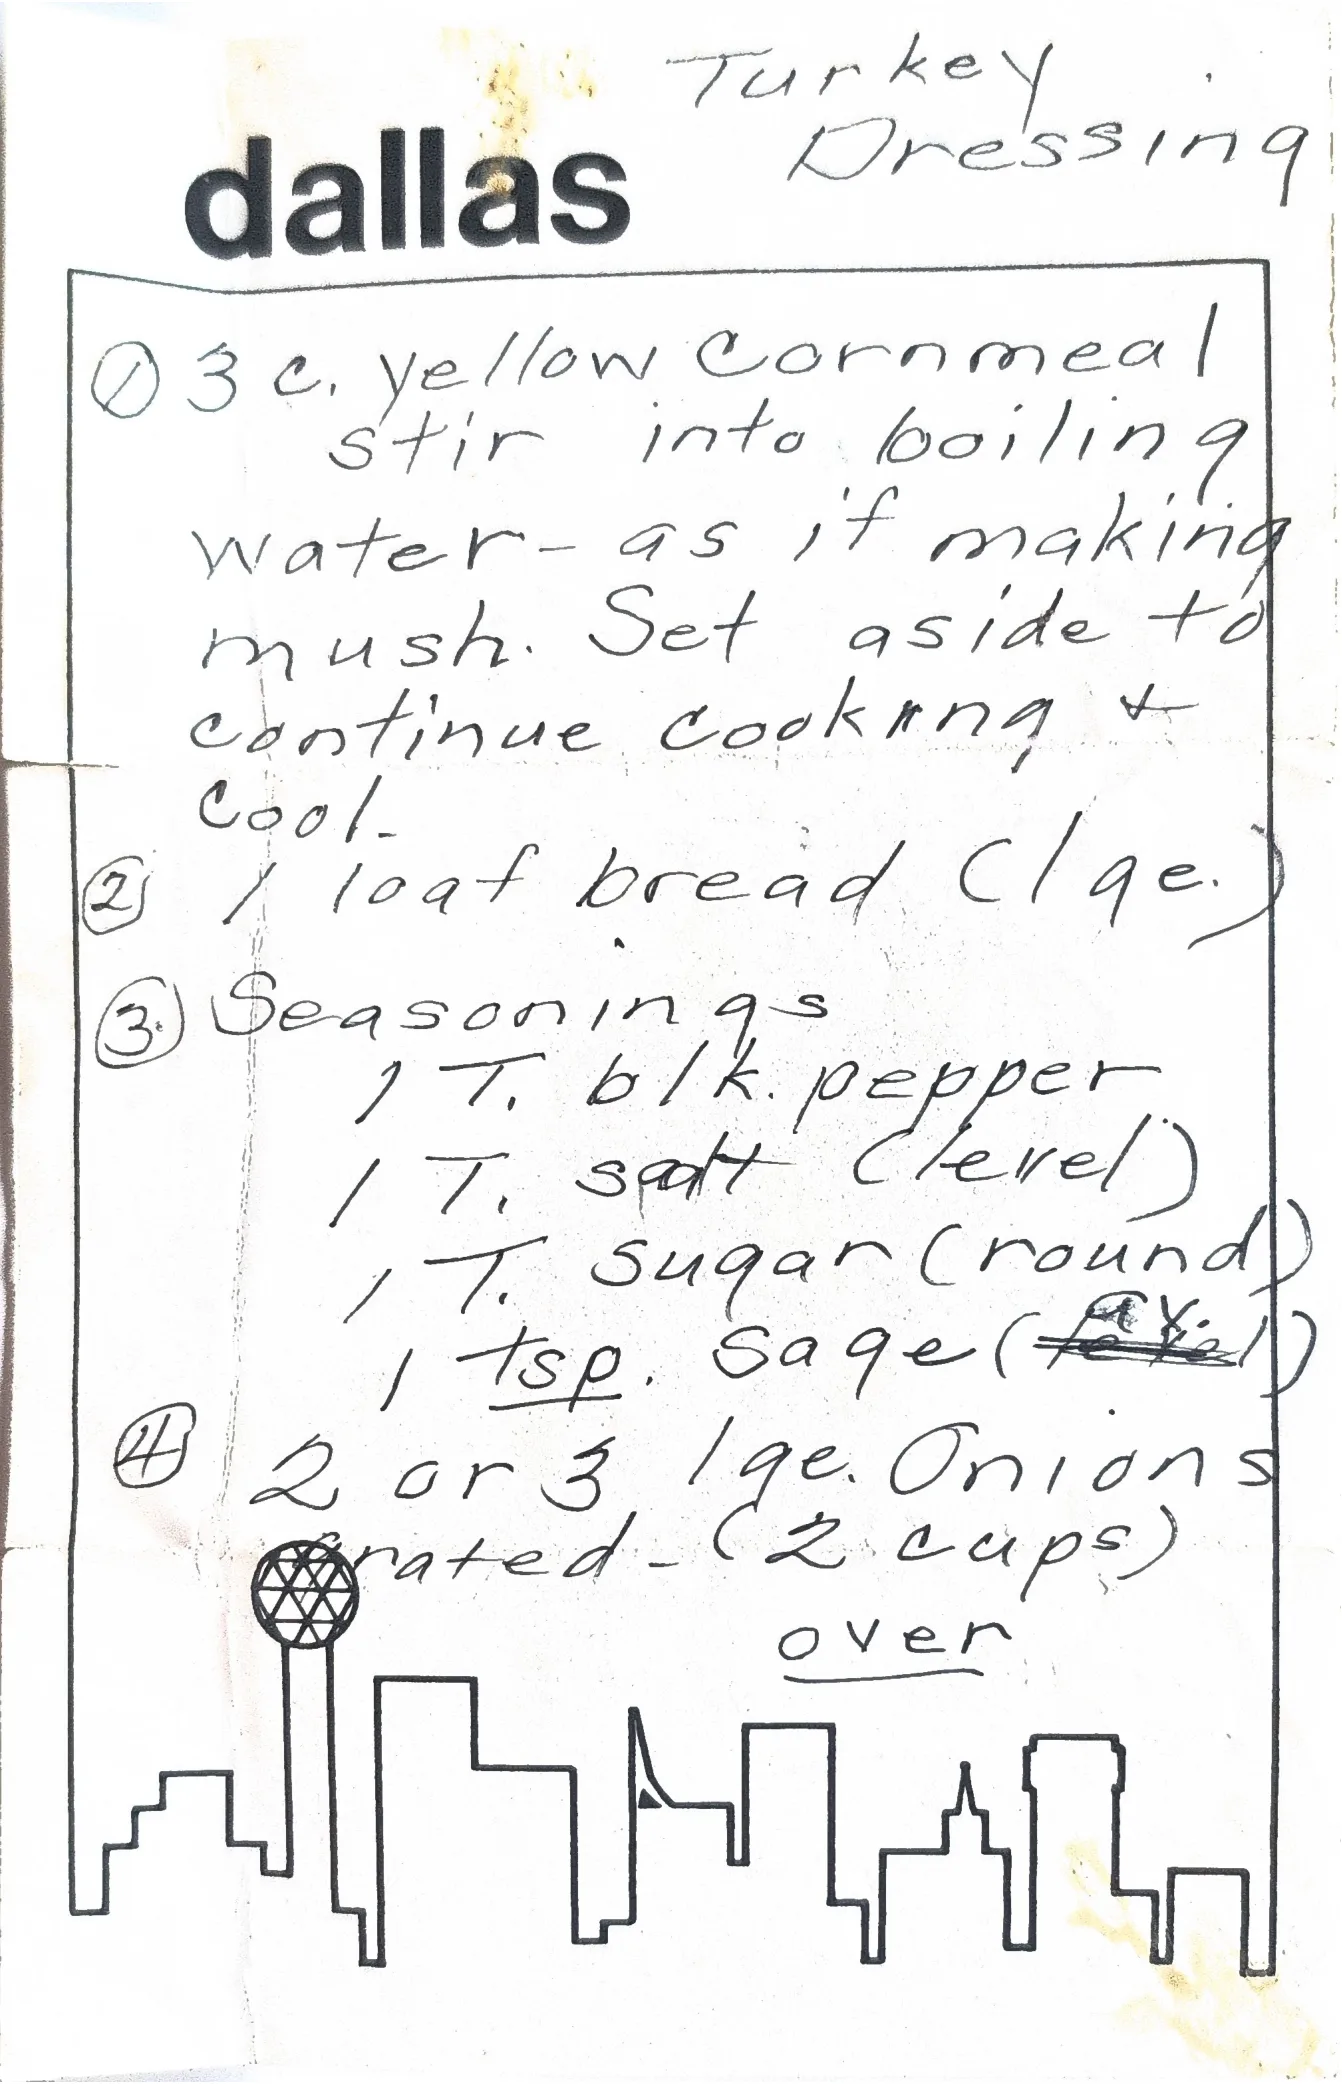 Turkey
Dressing
dallas
① 3 c. yellow cornmeal
stir into boiling
water - as if making
mush. Set aside to
continue cooking +
cool.
② 1 loaf bread (lge.)
③ Seasonings
1 T. blk. pepper
1 T. salt (level)
1 T. sugar (round)
av.
1 tsp. sage (level)
④ 2 or 3 lge. Onions
grated - (2 cups)
over